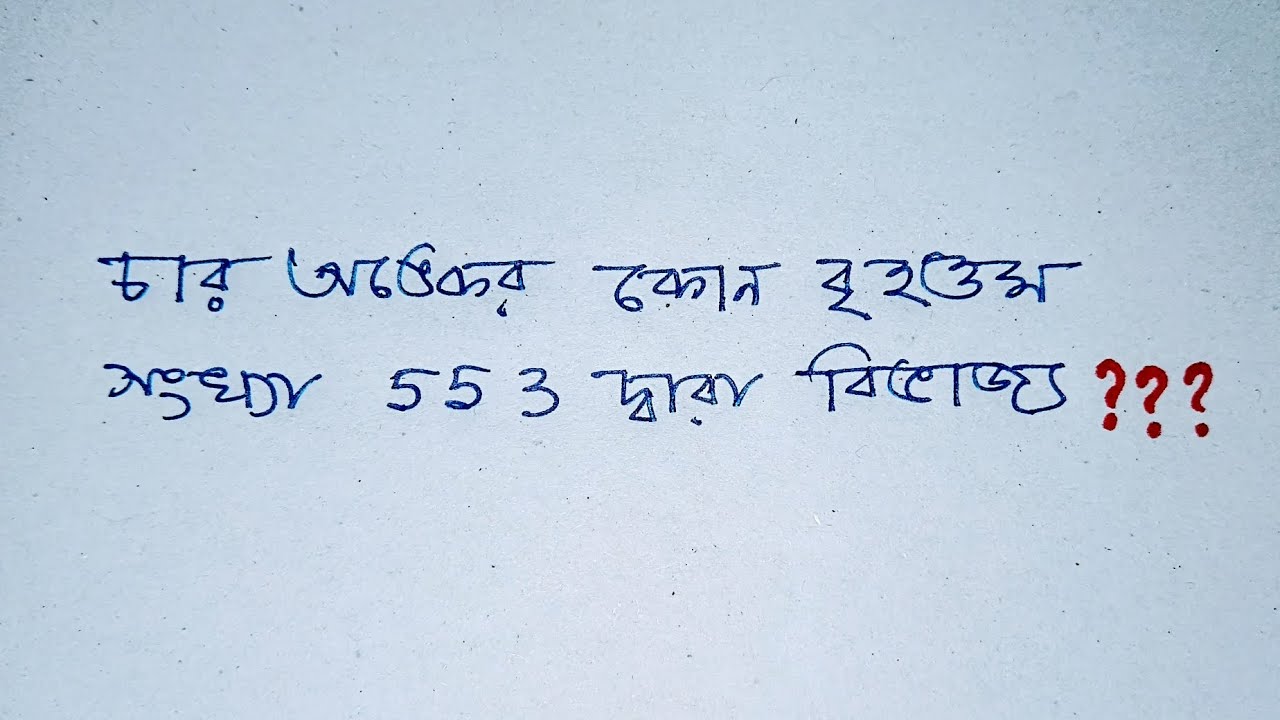 চার অঙ্কের কোন বৃহত্তম
সংখ্যা 553 দ্বারা বিভাজ্য ???